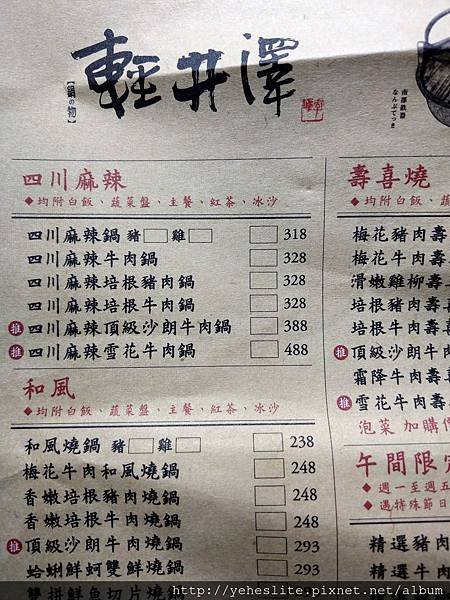 輕井澤
【鍋の物】
南部鉄器
なんぶてつき
四川麻辣
◆均附白飯、蔬菜盤、主餐、紅茶、冰沙
四川麻辣鍋 豬□ 雞□ □ 318
四川麻辣牛肉鍋 □ 328
四川麻辣培根豬肉鍋 □ 328
四川麻辣培根牛肉鍋 □ 328
推 四川麻辣頂級沙朗牛肉鍋 □ 388
推 四川麻辣雪花牛肉鍋 □ 488
和風
◆均附白飯、蔬菜盤、主餐、紅茶、冰沙
和風燒鍋 豬□ 雞□ □ 238
梅花牛肉和風燒鍋 □ 248
香嫩培根豬肉燒鍋 □ 248
香嫩培根牛肉燒鍋 □ 248
推 頂級沙朗牛肉燒鍋 □ 293
蛤蜊鮮蚵雙鮮燒鍋 □ 293
雙拼鮮魚切片燒鍋
壽喜燒
◆均附白飯、蔬
梅花豬肉壽
梅花牛肉壽
滑嫩雞柳壽
培根豬肉壽
培根牛肉壽
推 頂級沙朗牛肉
霜降牛肉壽
推 雪花牛肉壽
泡菜加購價
午間限定
◆週一至週五
◆遇特殊節日
精選豬肉
精選牛肉
http://yeheslite.pixnet.net/album